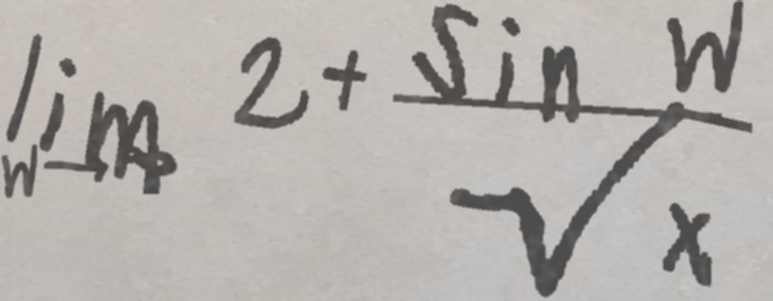 lim 2 + sin w
w → √x